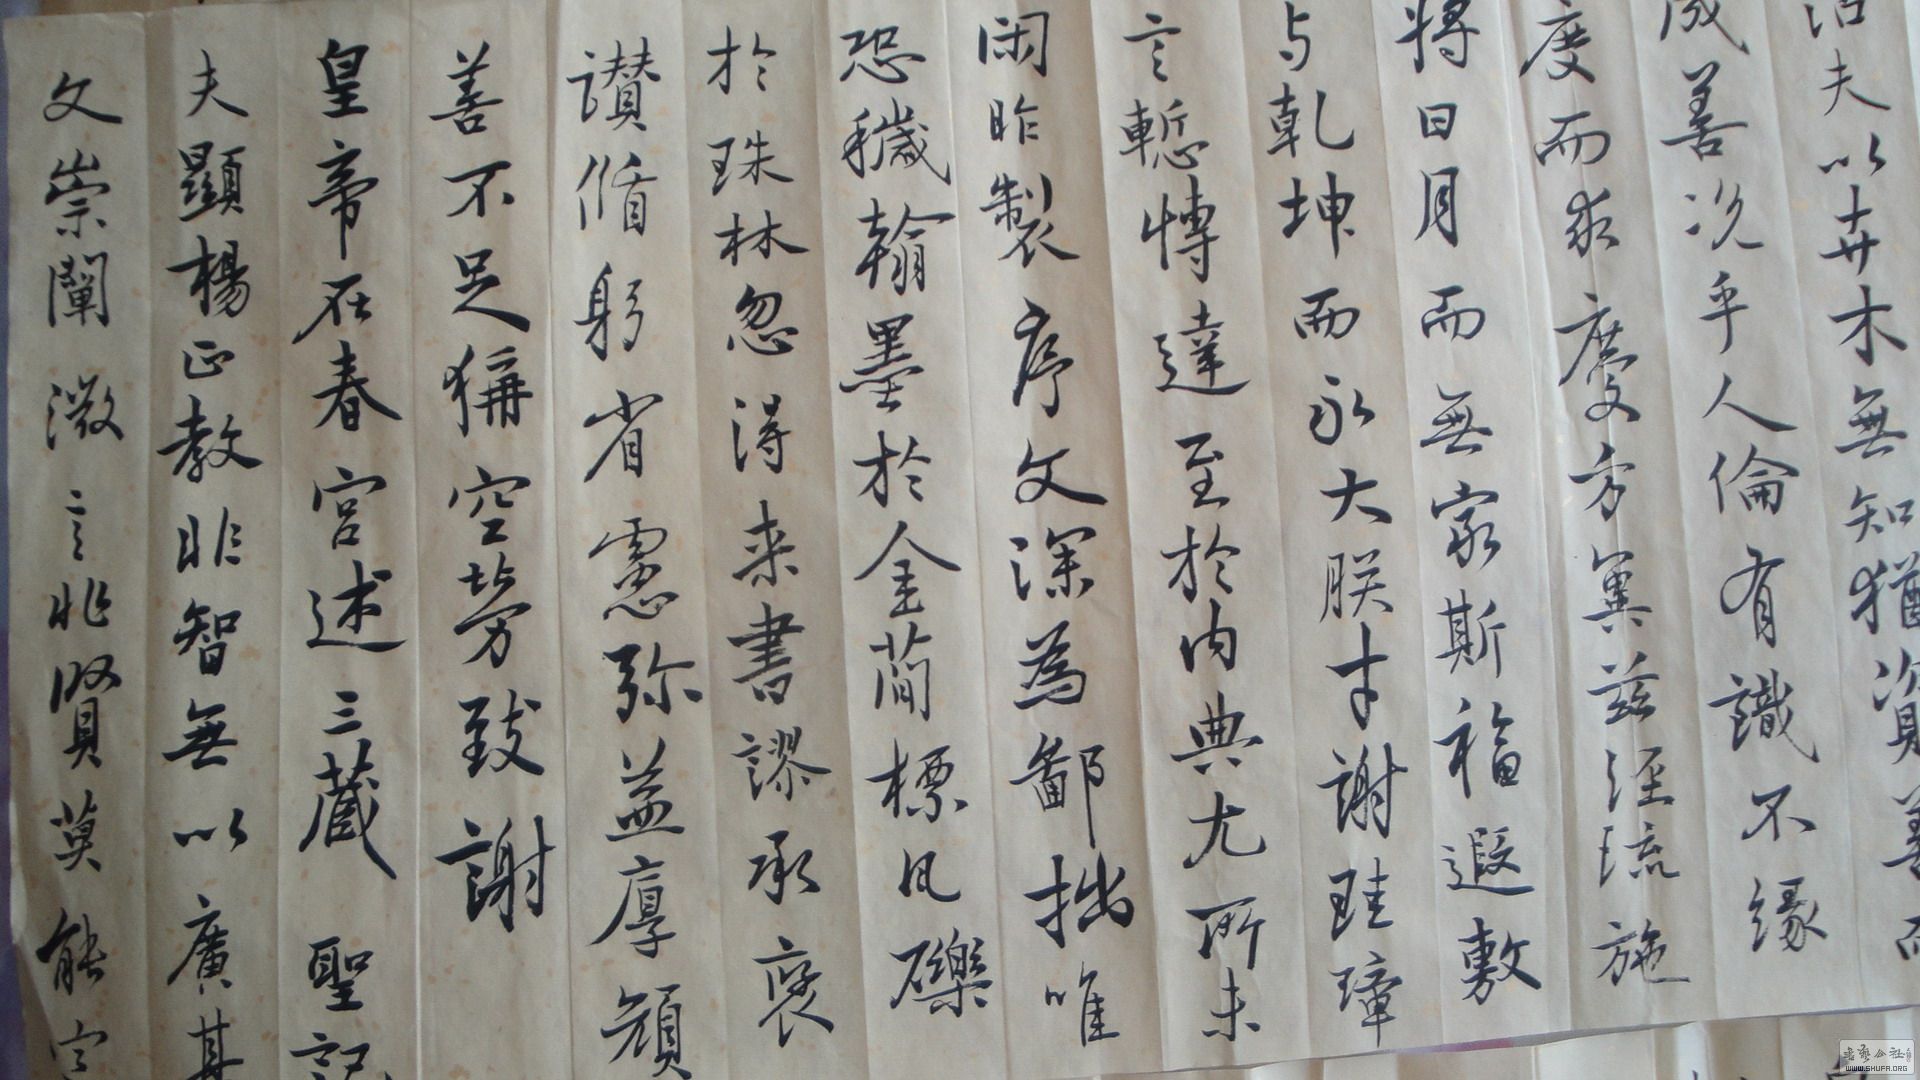 夫以卉木無知猶資善而
成善况乎人倫有識不緣
度而求慶方冀兹經流施
將日月而無窮斯福遐敷
与乾坤而永大朕才謝珪璋
言慙博達至於内典尤所未
閑昨製序文深為鄙拙唯
恐穢翰墨於金簡標凡礫
於珠林忽得来書謬承褒
讃循躬省慮弥益厚顔
善不足稱空勞致謝
皇帝在春宫述三藏聖記
夫顯楊正教非智無以廣其
文崇闡微言非賢莫能定
書法公社
WWW.SHUFA.ORG